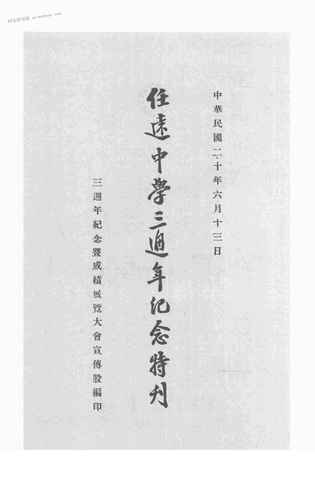 中華民國二十年六月十三日
任遠中學三週年紀念特刊
三週年紀念暨成績展覽大會宣傳股編印